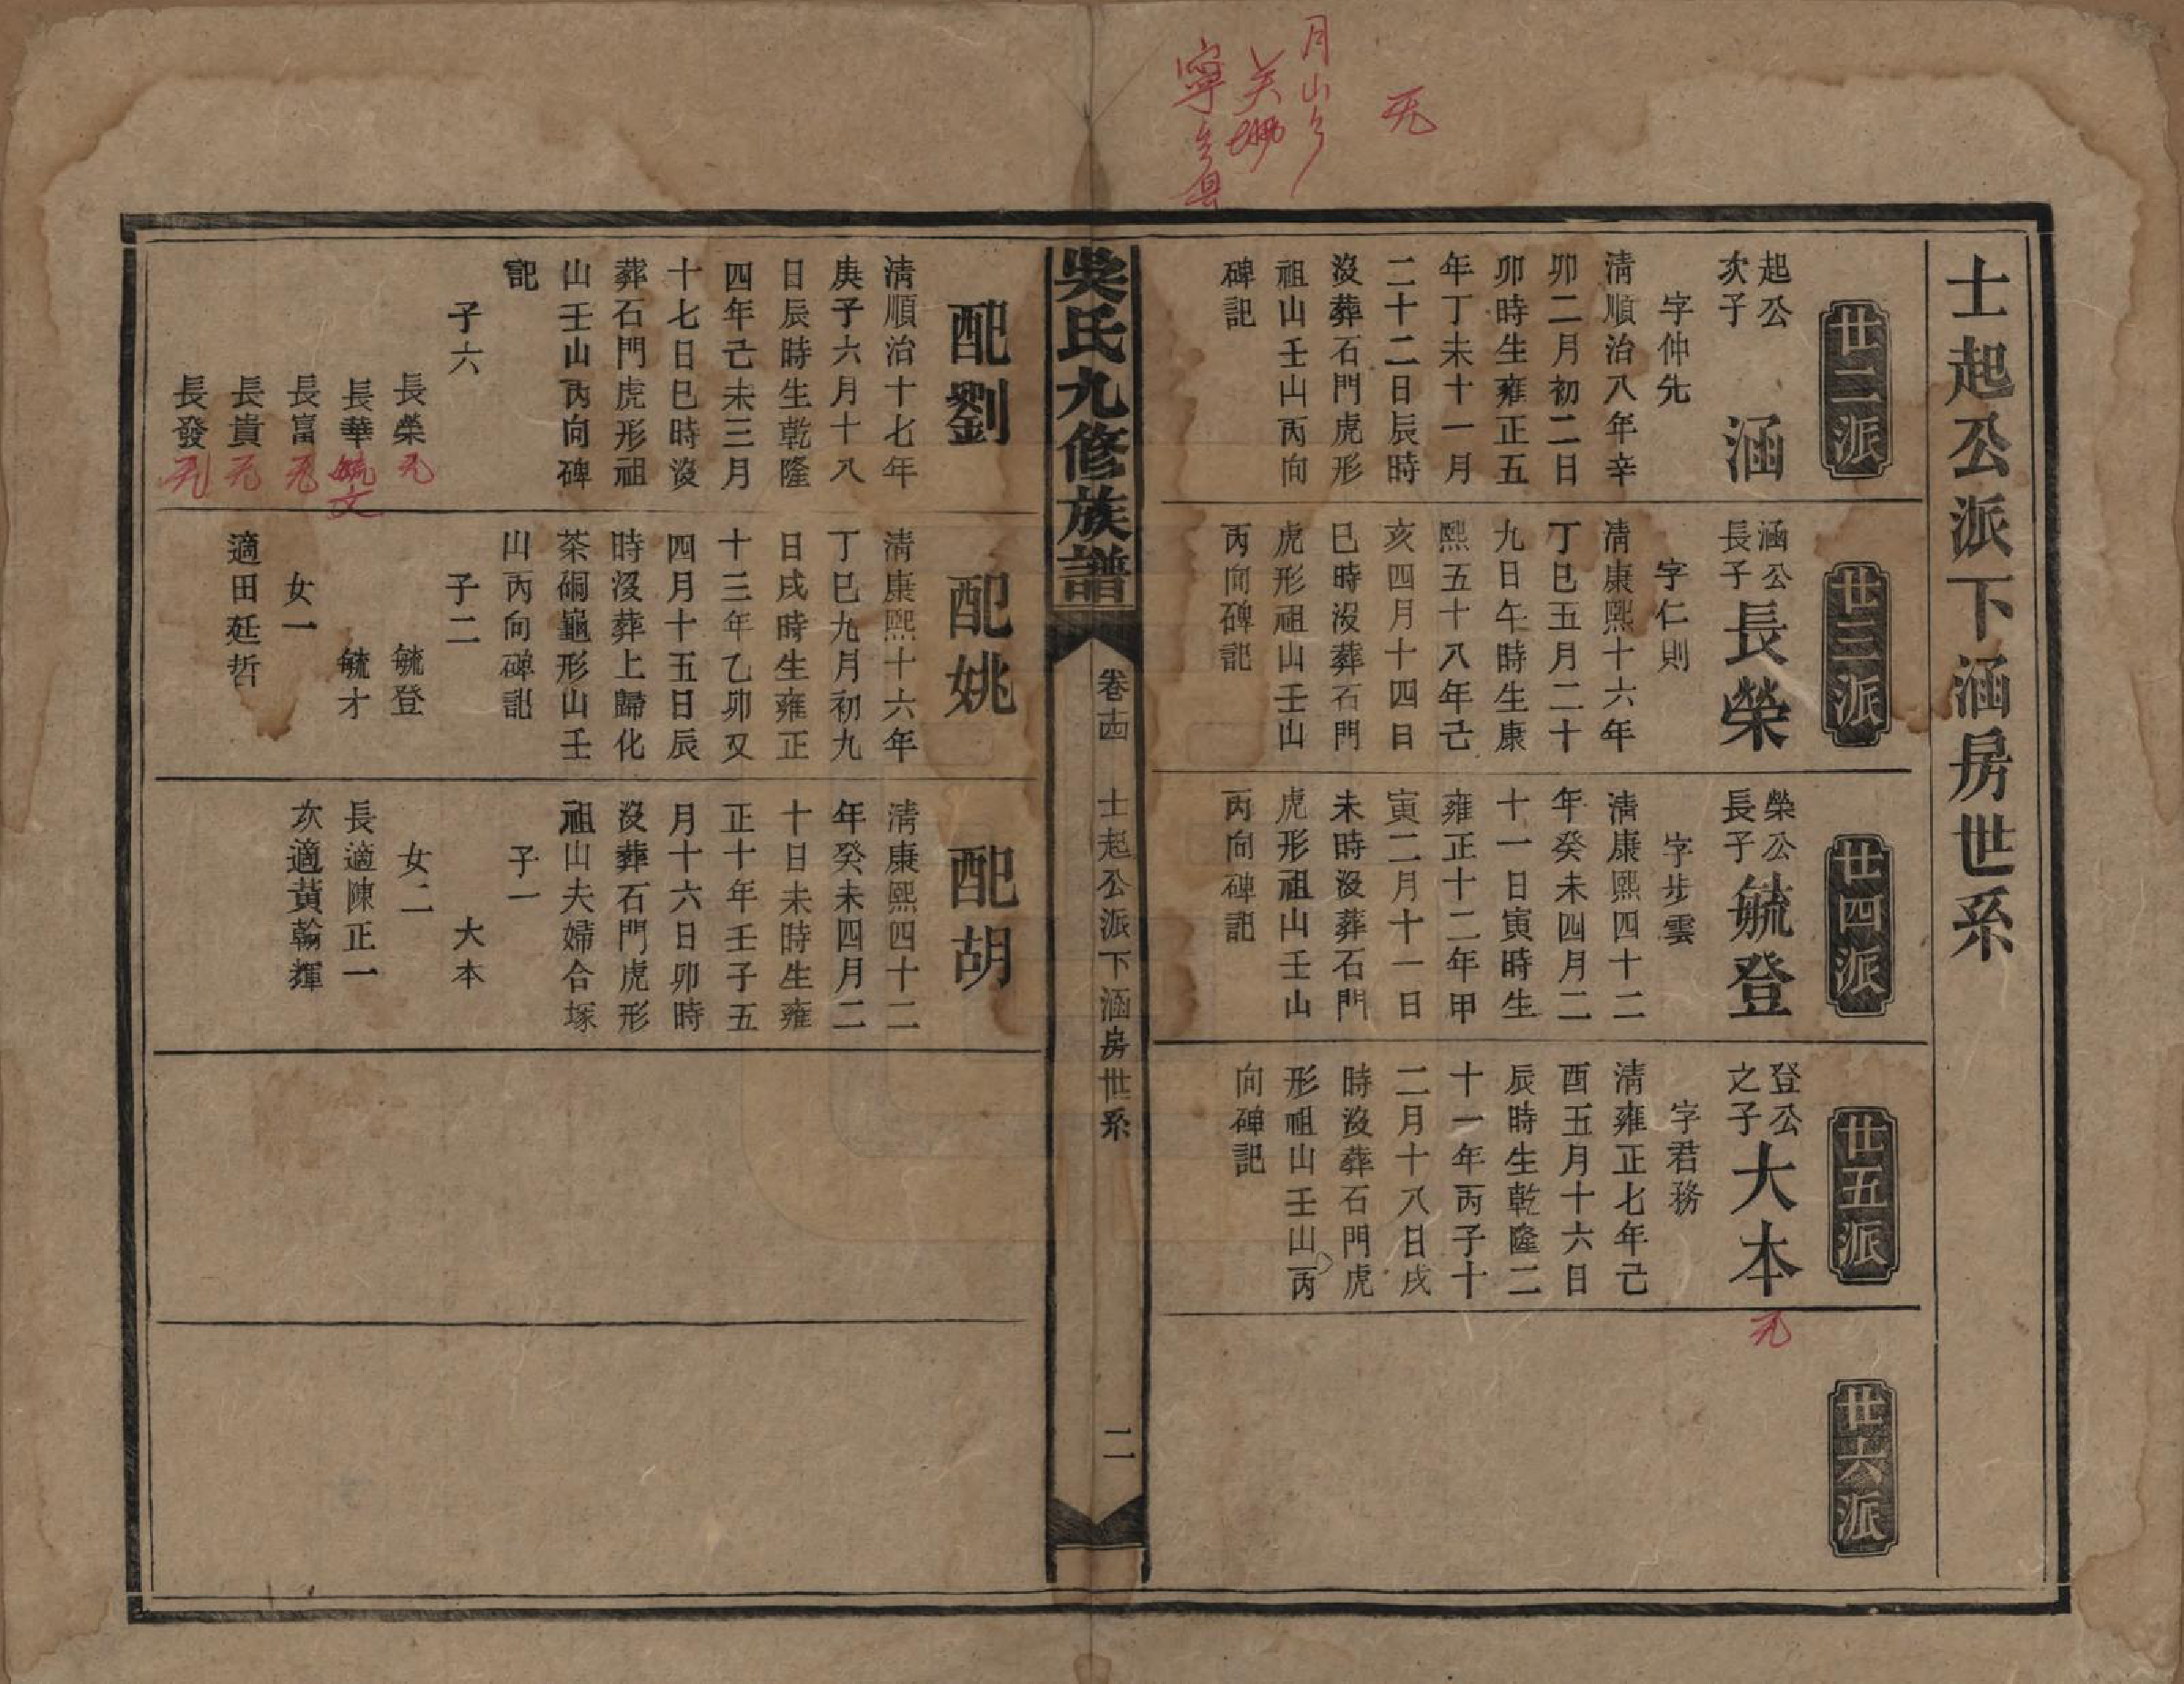 士起公派下涵房世系
廿二派
起公
次子
涵
字仲先
清順治八年辛
卯二月初二日
卯時生雍正五
年丁未十一月
二十二日辰時
沒葬石門虎形
祖山壬山丙向
碑記
廿三派
涵公
長子
長榮
字仁則
清康熙十六年
丁巳五月二十
九日午時生康
熙五十八年己
亥四月十四日
巳時沒葬石門
虎形祖山壬山
丙向碑記
廿四派
榮公
長子
毓登
字步雲
清康熙四十二
年癸未四月二
十一日寅時生
雍正十二年甲
寅二月十一日
未時沒葬石門
虎形祖山壬山
丙向碑記
廿五派
登公
之子
大本
无
字君務
清雍正七年己
酉五月十六日
辰時生乾隆二
十一年丙子十
二月十八日戌
時沒葬石門虎
形祖山壬山丙
向碑記
廿六派
无
月山
寧 县
吳氏九修族譜
卷十四
士起公派下涵房世系
二
配劉
清順治十七年
庚子六月十八
日辰時生乾隆
四年己未三月
十七日巳時沒
葬石門虎形祖
山壬山丙向碑
記
子六
長榮无
長華毓文
長富无
長貴无
長發无
配姚
清康熙十六年
丁巳九月初九
日戌時生雍正
十三年乙卯又
四月十五日辰
時沒葬上歸化
茶硐龜形山壬
山丙向碑記
子二
毓登
毓才
女一
適田廷哲
配胡
清康熙四十二
年癸未四月二
十日未時生雍
正十年壬子五
月十六日卯時
沒葬石門虎形
祖山夫婦合塚
子一
大本
女二
長適陳正一
次適黃翰輝